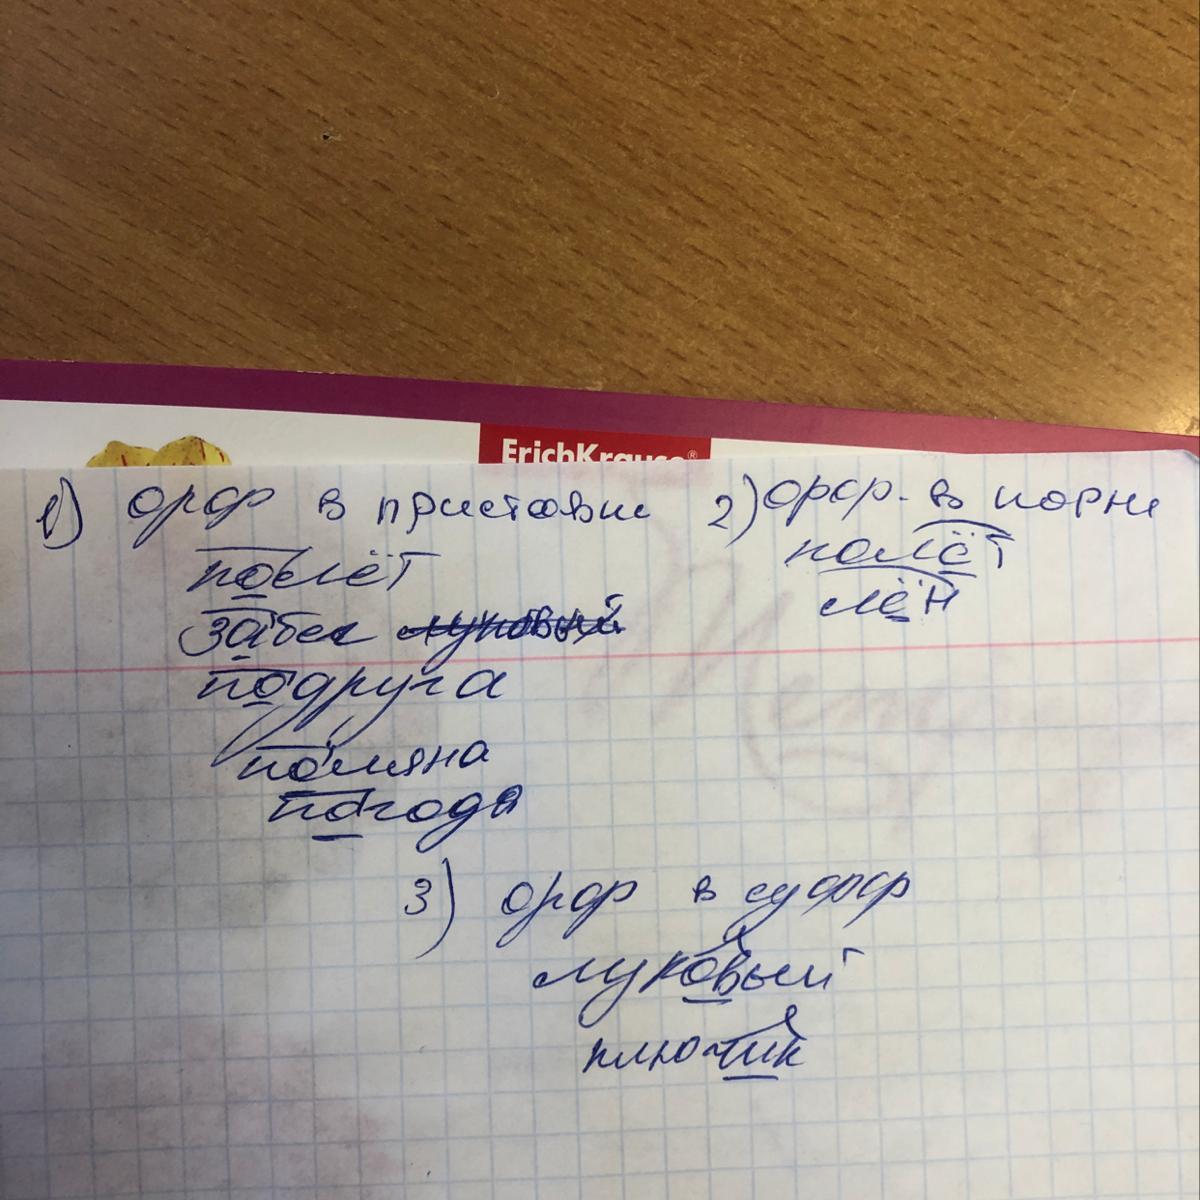 ErichKrause®
1) орф в приставке 2) орф. в корне
полёт
забег
подруга
поляна
погода
полёт
лён
3) орф в суфф
луковый
ключик